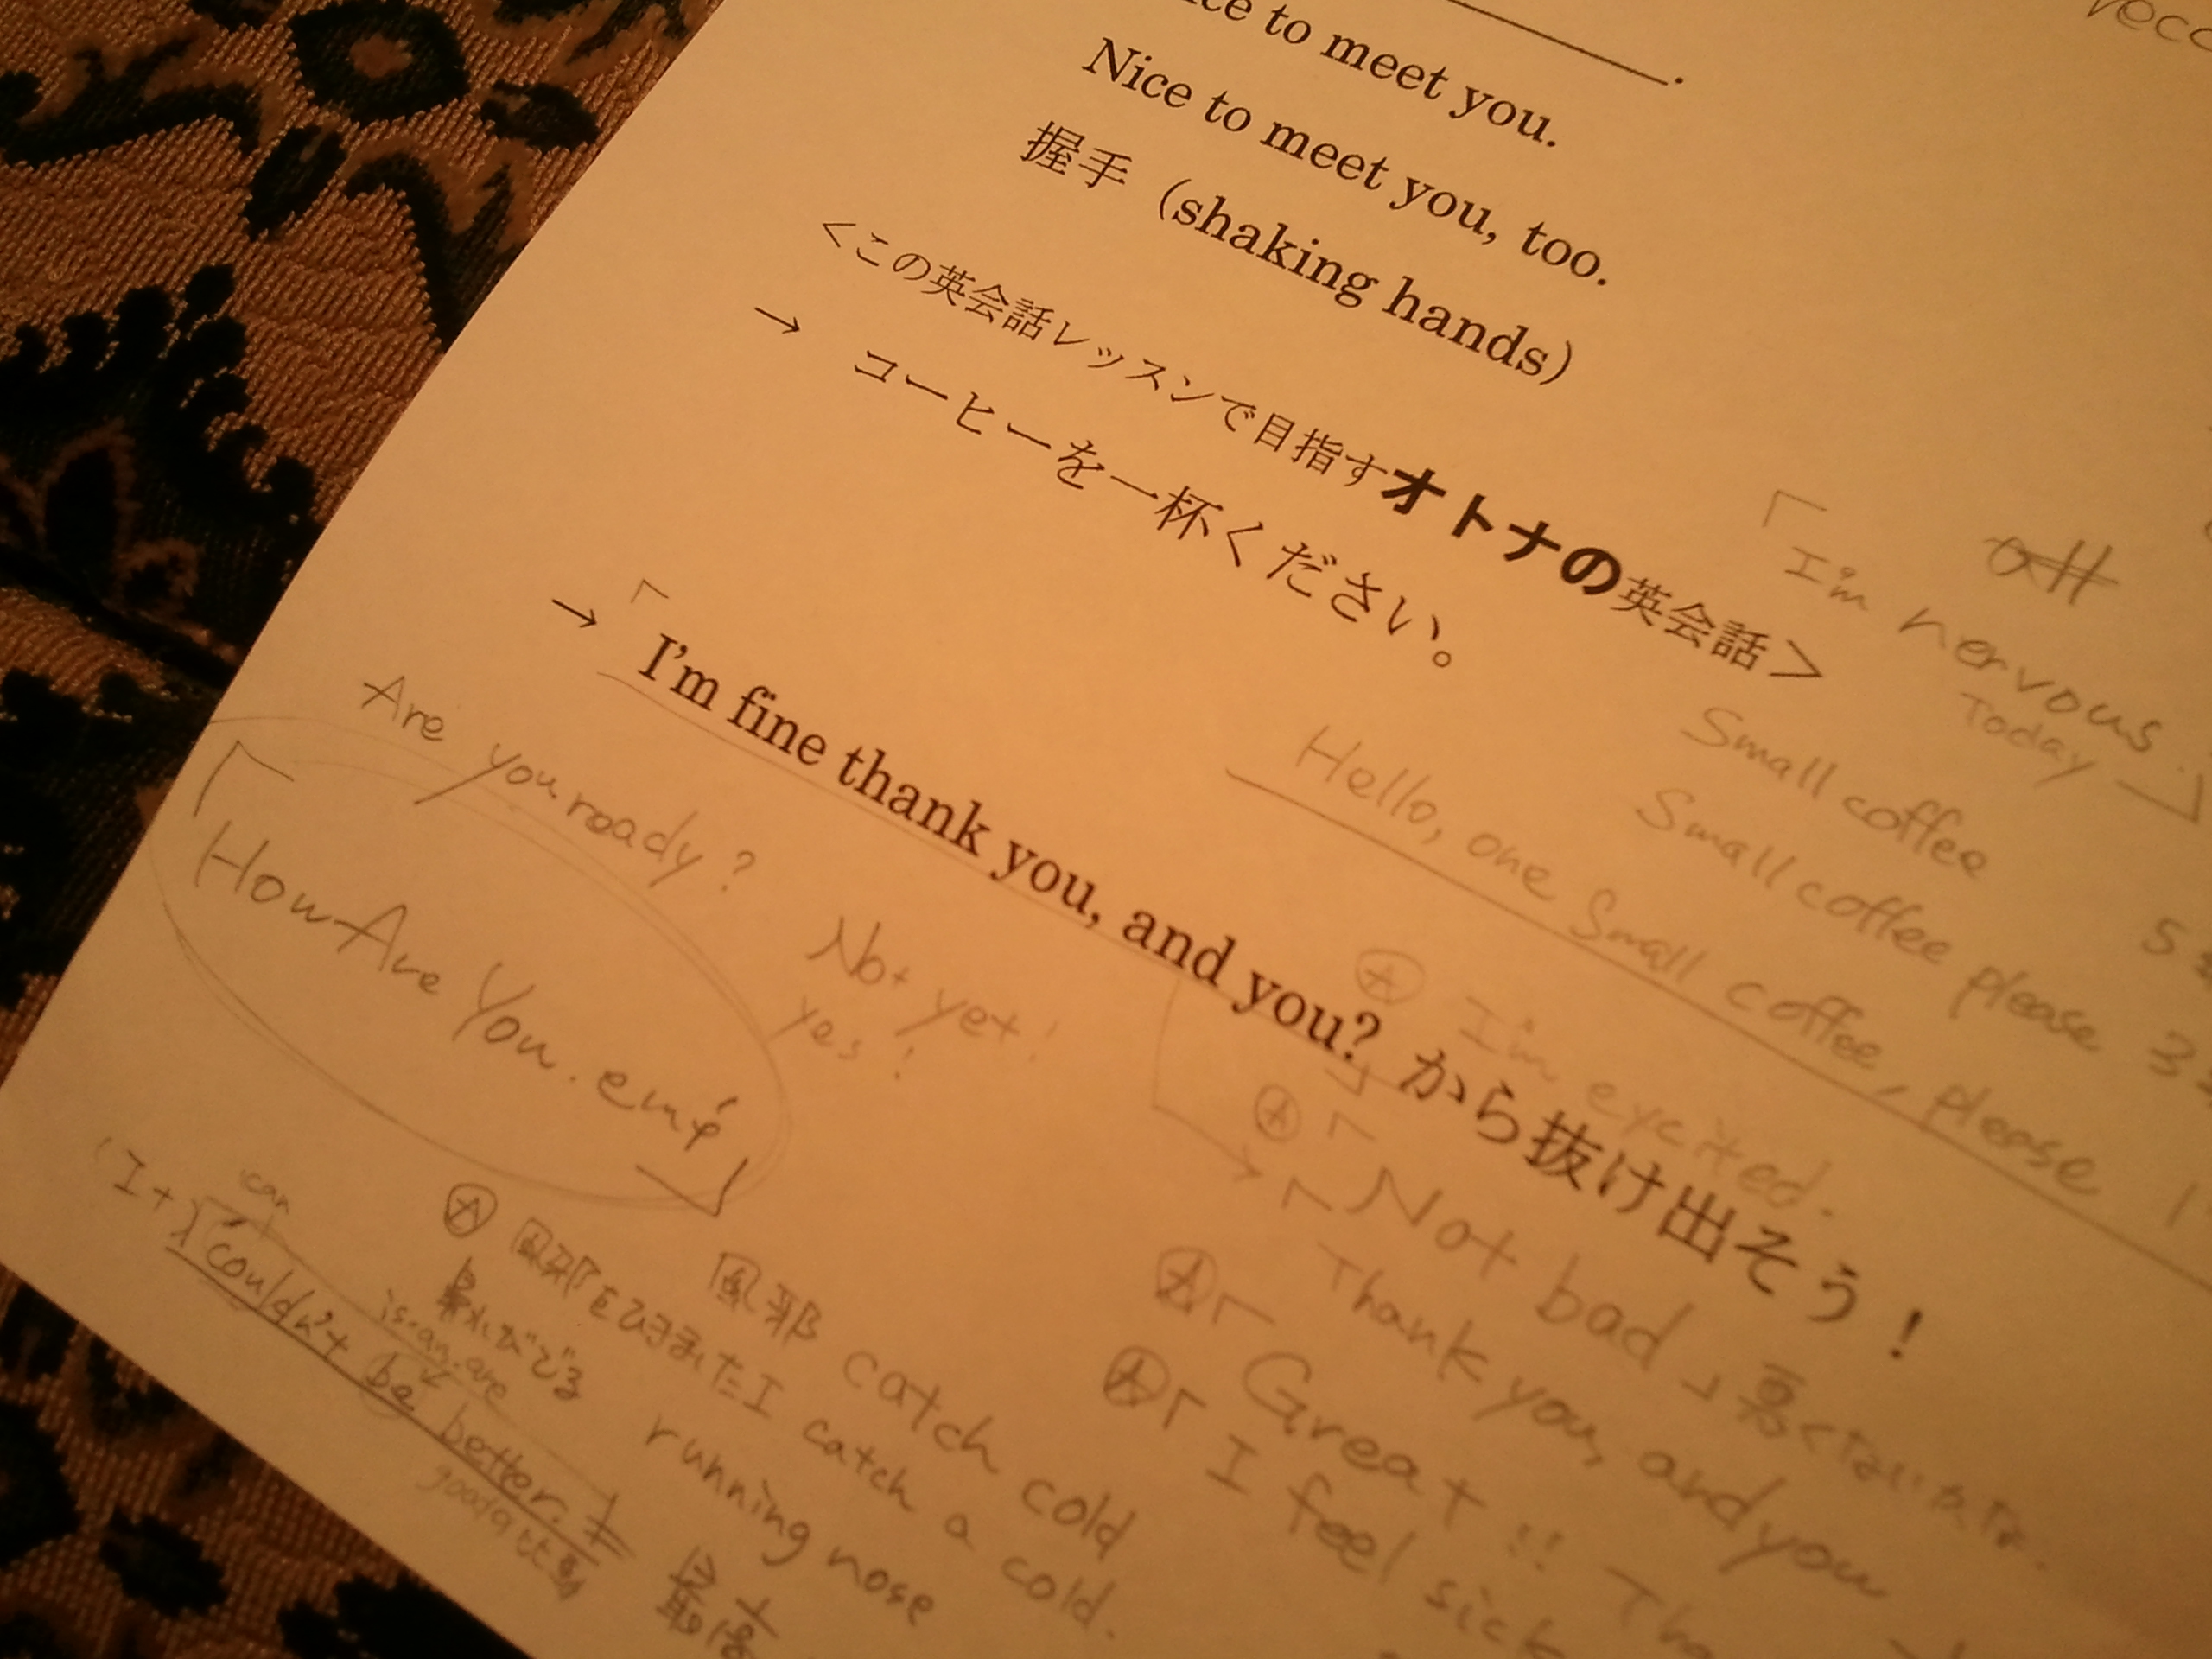 to meet you.
Nice to meet you, too.
握手（shaking hands）
＜この英会話レッスンで目指すオトナの英会話＞
→ コーヒーを一杯ください。
「I'm nervous.
Today」
Small coffee
Small coffee please 3
Hello, one Small coffee, please 1
→「I'm fine thank you, and you?」から抜け出そう！
Are you ready?
Not yet!
yes!
「How Are You. emi」
I'm excited.
「Not bad」悪くないかな.
Thank you, and you
「Great!!
「I feel sick
風邪 catch cold
風邪をひきました I catch a cold.
鼻水がでる running nose
can
I + couldn't be better.
is am are
goodの比較
最高